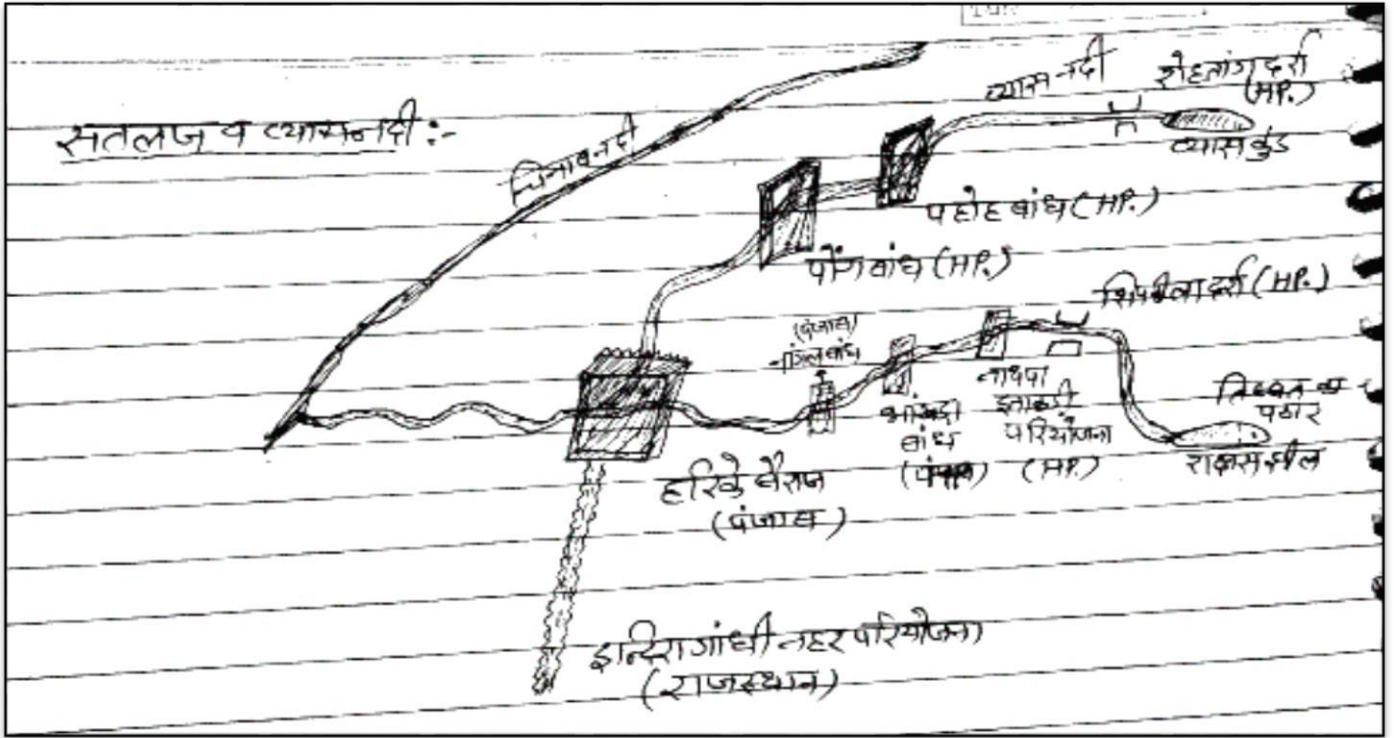 सतलज व व्यास नदी :-
चिनाब नदी
व्यास नदी
रोहतांग दर्रा
(HP.)
व्यास कुंड
पहोह बांध (HP.)
पोंग बांध (HP.)
शिपकीला दर्रा (HP.)
(पंजाब)
बांध
बांध
(पंजाब)
नाथपा
झाकड़ी
परियोजना
(HP.)
तिब्बत का
पठार
राक्षस झील
हरिके बैराज
(पंजाब)
इन्दिरा गांधी नहर परियोजना
(राजस्थान)